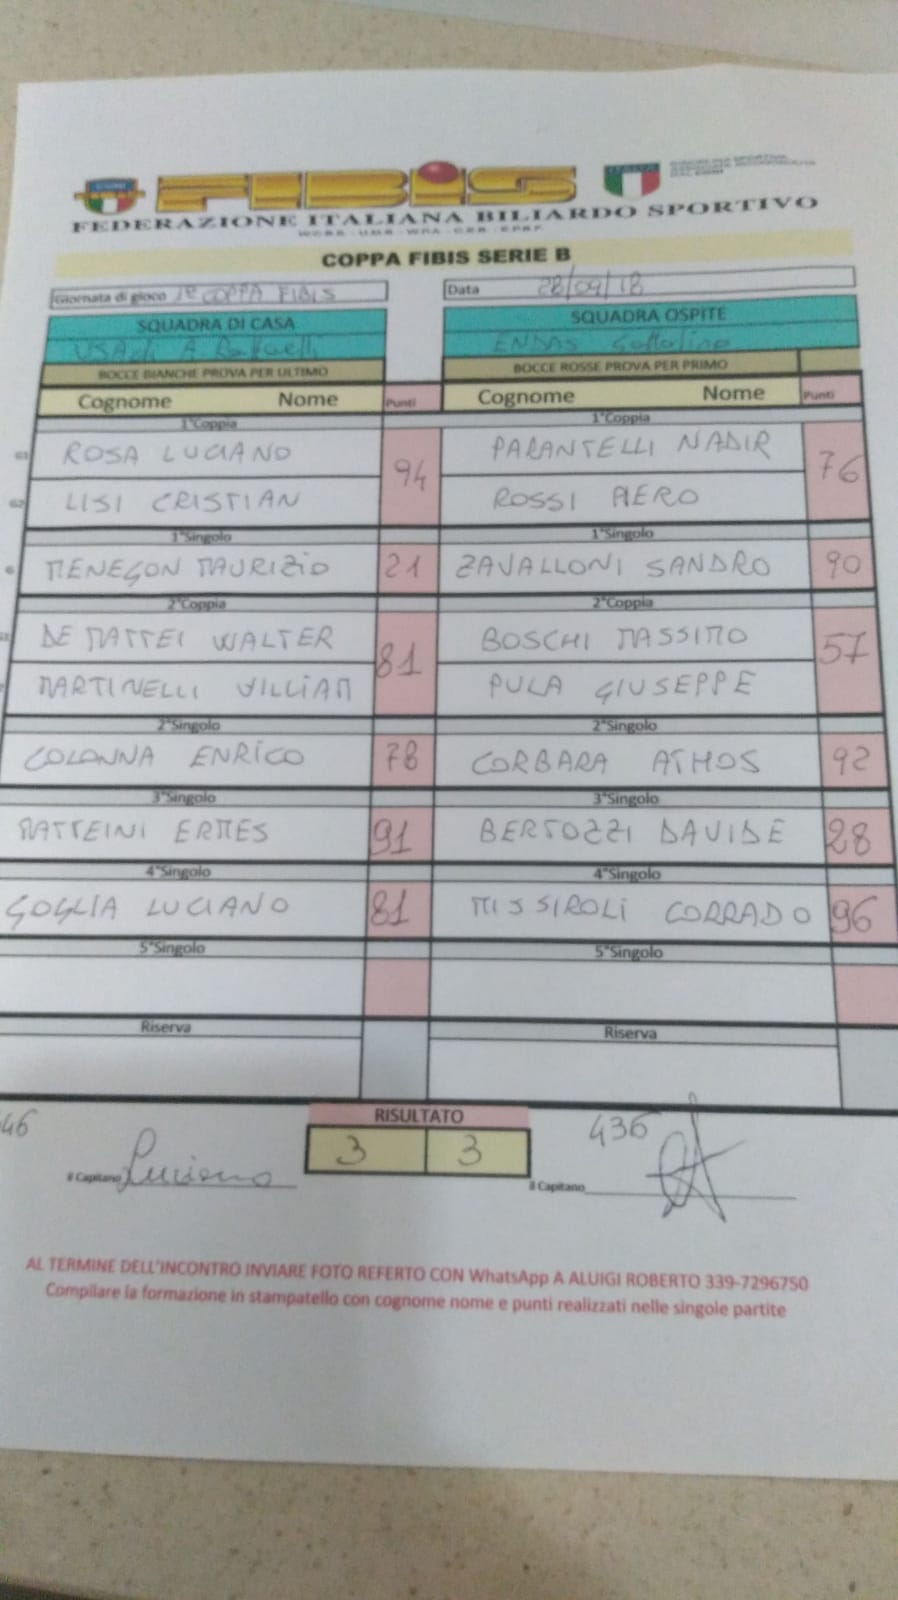 FIBIS
FEDERAZIONE ITALIANA BILIARDO SPORTIVO
COPPA FIBIS SERIE B
Giornata di gioco 1° COPPA FIBIS Data 28/09/18
SQUADRA DI CASA SQUADRA OSPITE
USAcli A. ENDAS
BOCCE BIANCHE PROVA PER ULTIMO BOCCE ROSSE PROVA PER PRIMO
Cognome Nome Punti Cognome Nome Punti
1°Coppia 1°Coppia
ROSA LUCIANO 94 PARANTELLI NADIR 76
LISI CRISTIAN ROSSI PIERO
1°Singolo 1°Singolo
MENEGON MAURIZIO 21 ZAVALLONI SANDRO 90
2°Coppia 2°Coppia
DE MATTEI WALTER 81 BOSCHI MASSIMO 57
MARTINELLI VILLIAM PULA GIUSEPPE
2°Singolo 2°Singolo
COLONNA ENRICO 78 CORBARA ATHOS 92
3°Singolo 3°Singolo
MATTEINI ERMES 91 BERTOZZI DAVIDE 28
4°Singolo 4°Singolo
GOGLIA LUCIANO 81 MISSIROLI CORRADO 96
5°Singolo 5°Singolo
Riserva Riserva
46 RISULTATO 436
3 3
il Capitano Luciano il Capitano
AL TERMINE DELL'INCONTRO INVIARE FOTO REFERTO CON WhatsApp A ALUIGI ROBERTO 339-7296750
Compilare la formazione in stampatello con cognome nome e punti realizzati nelle singole partite